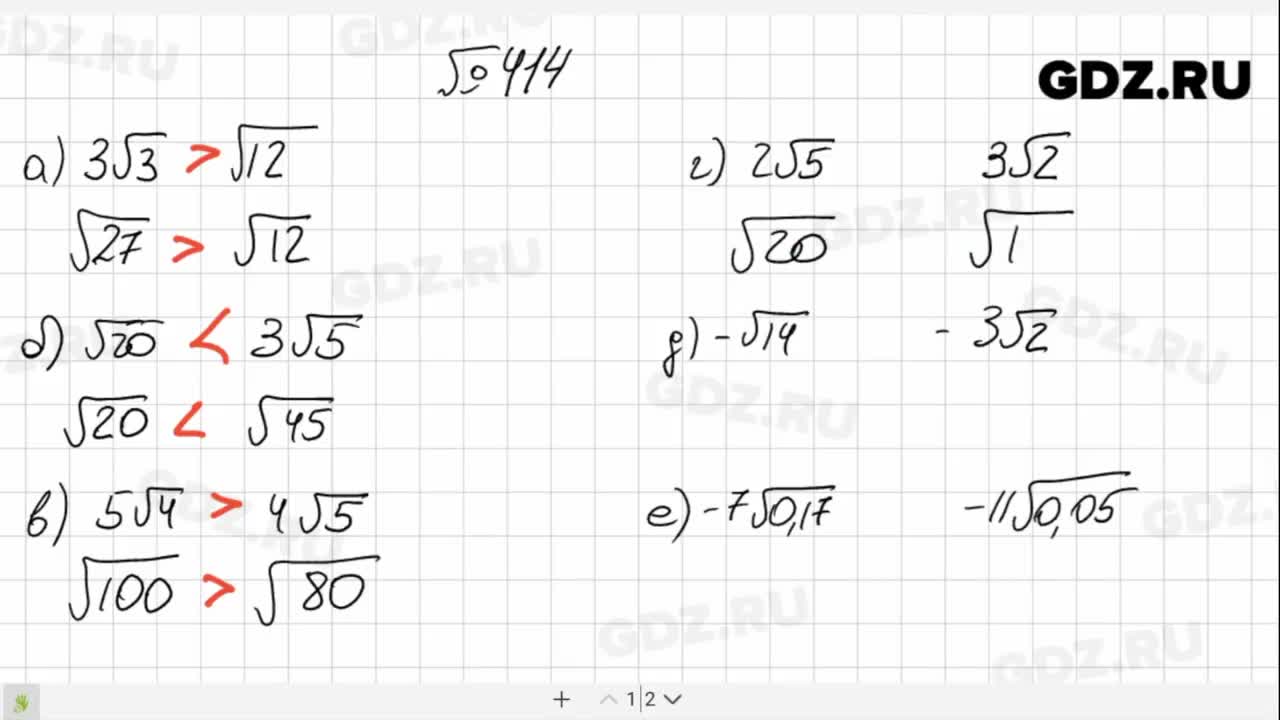 №414
GDZ.RU
а) 3√3 > √12
√27 > √12
б) √20 < 3√5
√20 < √45
в) 5√4 > 4√5
√100 > √80
г) 2√5 3√2
√20 √1
д) -√14 -3√2
е) -7√0,17 -11√0,05
1|2